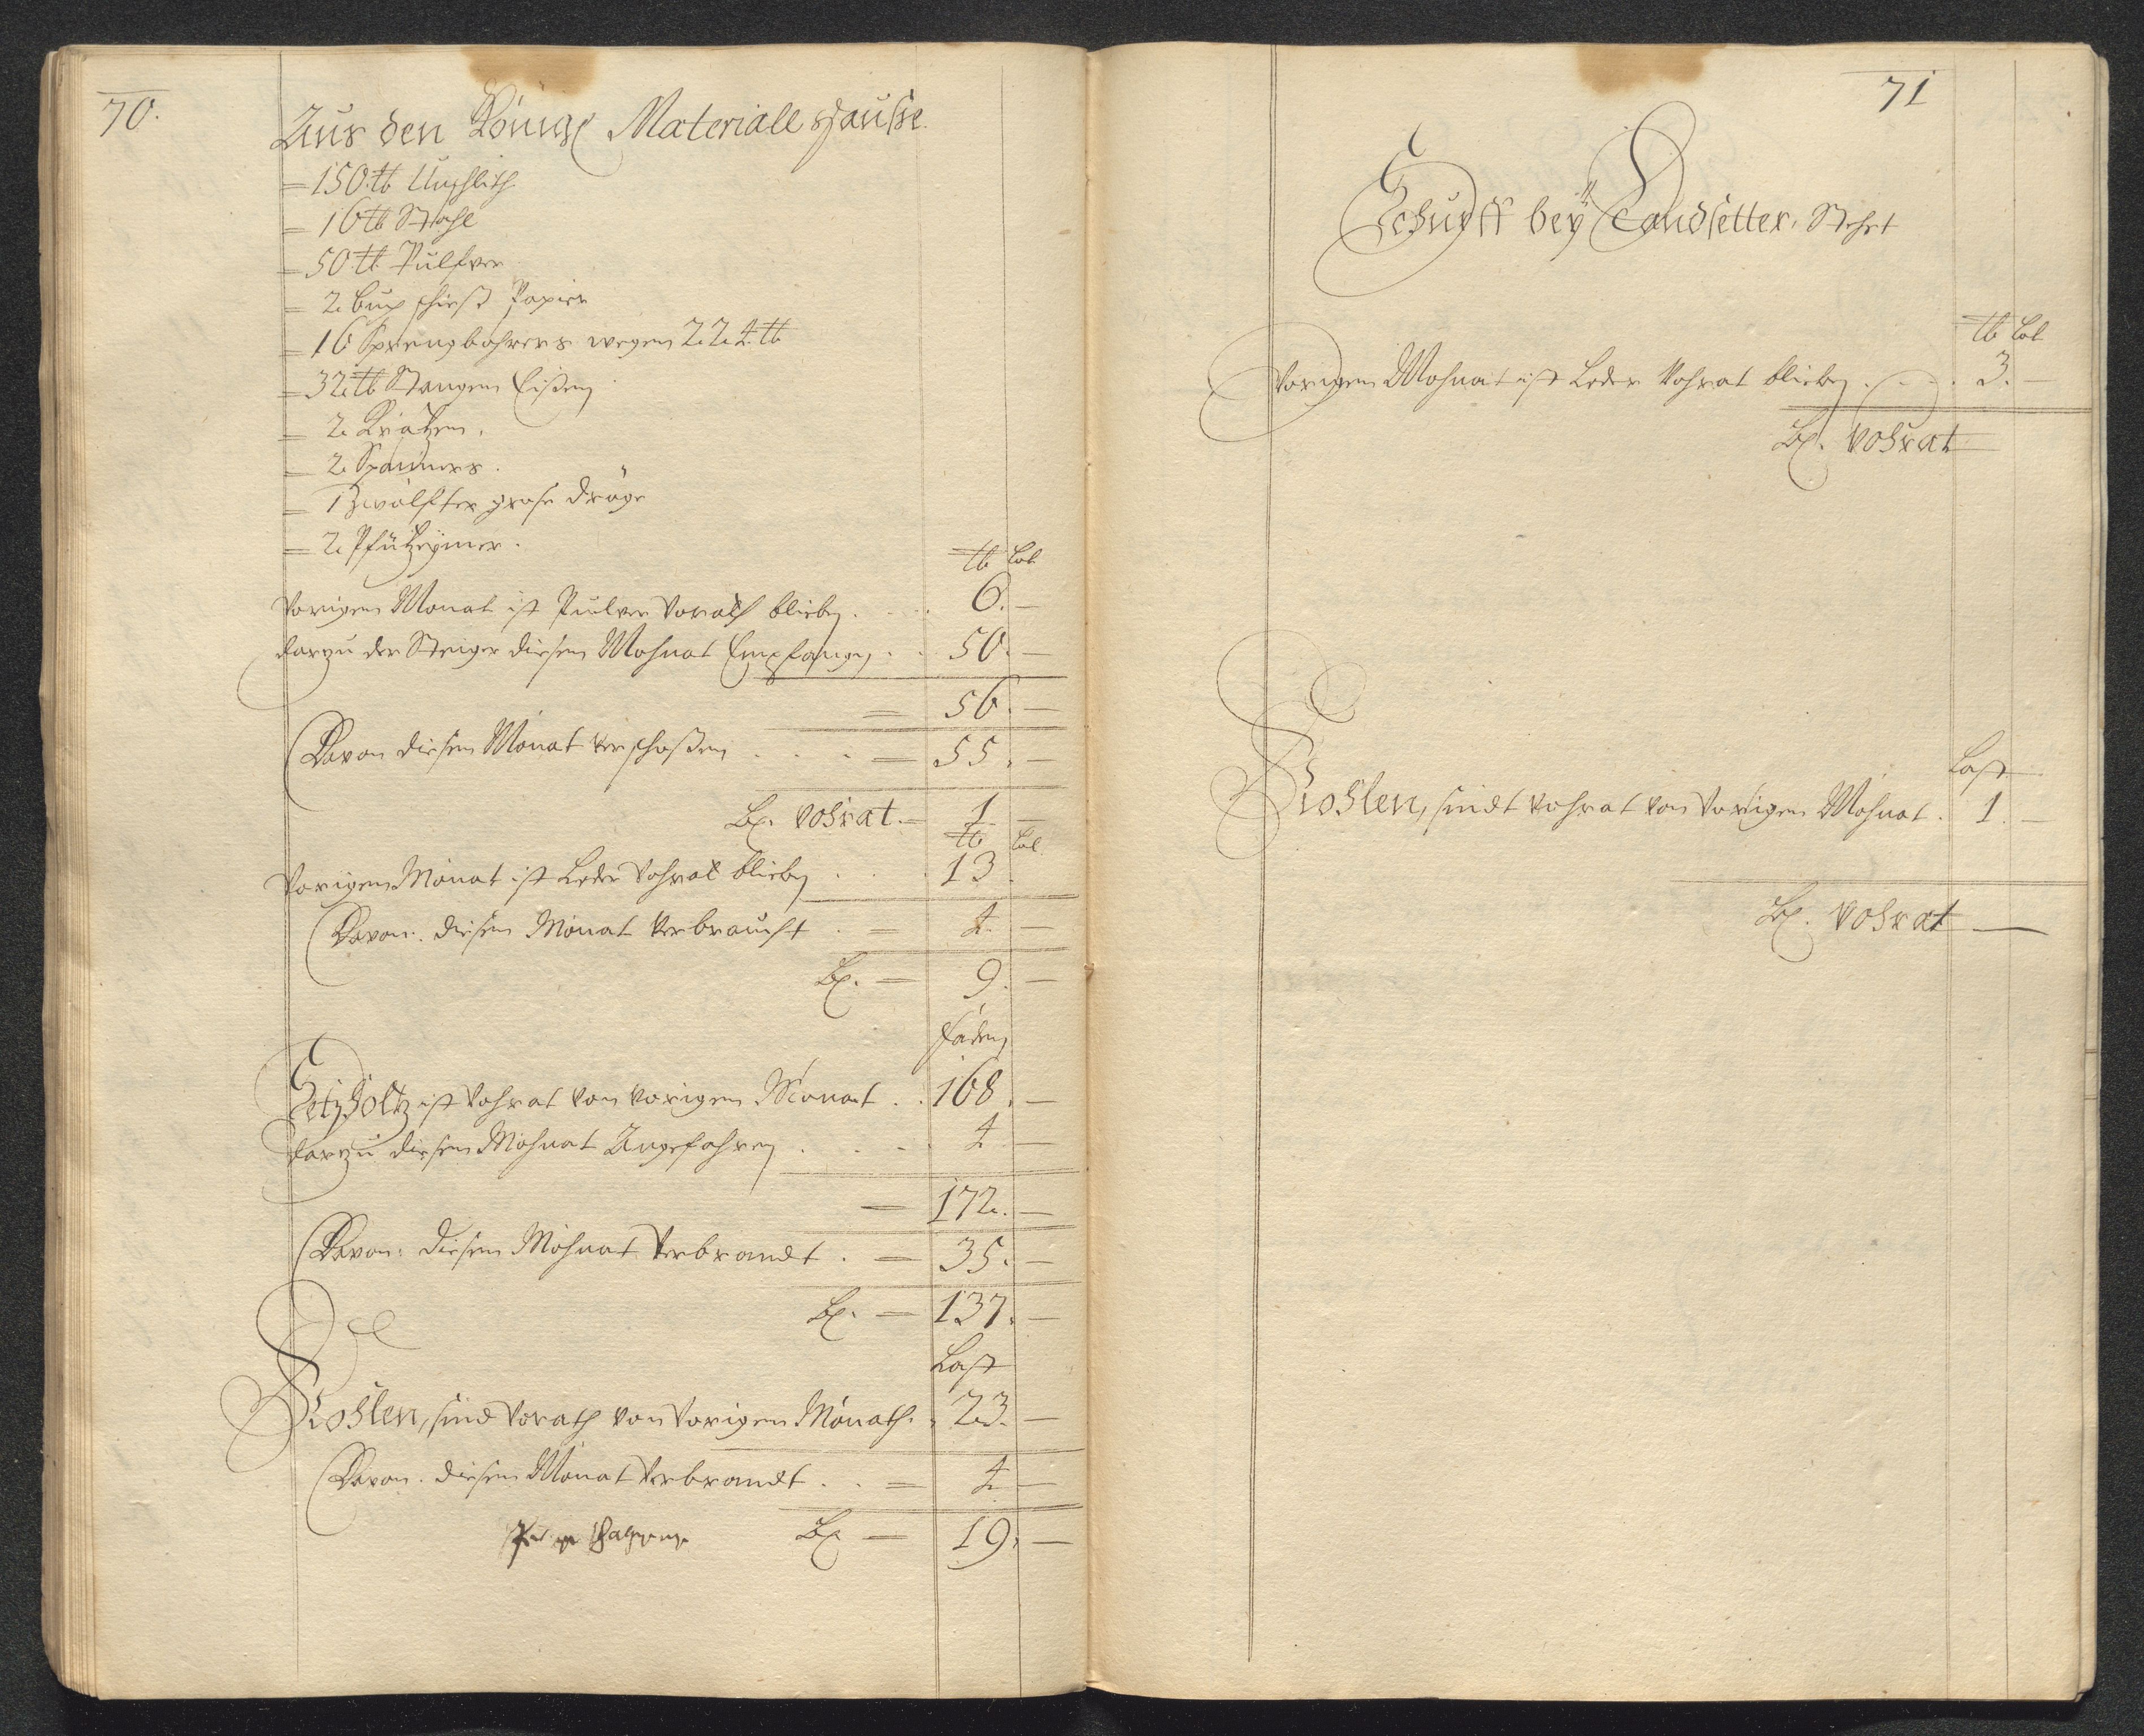 70.
Aus den Königl Materiall Hausse.
= 150. ℔ Unschlith
= 16 ℔ Stahl
= 50. ℔ Pulfver
= 2. buch schieß Papier
= 16 Sprengbohrers wegen 224. ℔
= 32. ℔ Stangen Eißen
= 2. Kratzen.
= 2. Spanners.
= 1 Zwölfter grose Dröge
= 2. Pfützeymer.
℔ Lot
Vorigen Monat ist Pulver Vorath blieben . . . . 6. —
darzu der Steiger diesen Mohnat Empfangen . . 50. —
= 56. —
Davon diesen Monat verschoßen . . . . = 55. —
Bh. Vohrat. — 1. —
℔ Lot
Vorigen Monat ist Leder Vohrat blieben . . . 13
Davon. diesen Monat verbraucht . = 4. —
Bh. = 9. —
faden
Setzholtz ist Vohrat von vorigen Monat . . 168. —
darzu diesen Mohnat Angefahren . . . . 4 —
= 172. —
Davon: diesen Mohnat Verbrandt . = 35. —
Bh. = 137. —
Last
Kohlen, sind Vorath von Vorigen Monath. . 23. —
Davon. diesen Monat Verbrandt . . = 4 —
Bh = 19. —
71
Schurff bey Landsetter. Stehet
℔ Lot
Vorigen Mohnat ist Leder Vohrat blieben . . . . 3. —
Bh. Vohrat
Last
Kohlen, sindt Vohrat von Vorigen Mohnat . 1. —
Bh. Vohrat —